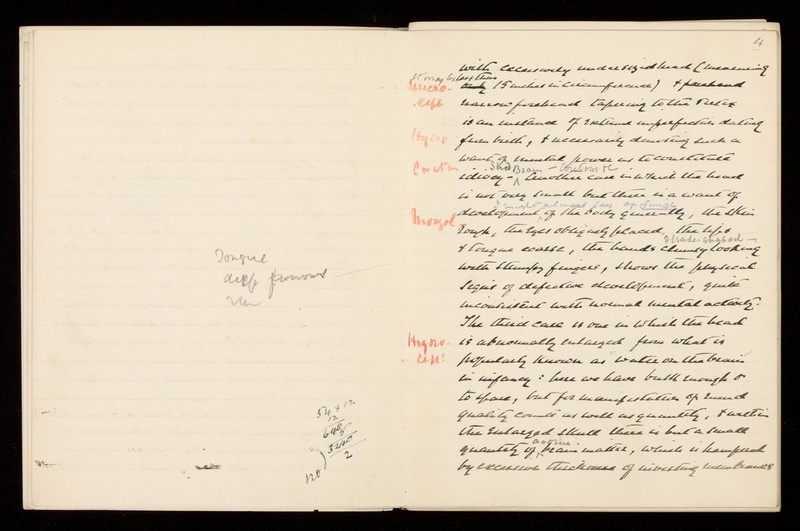 Tongue
deep furrows
54 × 12
12
648
5
3240
120
2
14
with excessively undersized head (measuring
it may be less than
only 15 inches in circumference) &
Micro-
ceph
narrow forehead tapering to the vertex
is an instance of extreme imperfection dating
Hydro
from birth, & necessarily denoting such a
want of mental power as to constitute
Cretin
Shd Brain -
idiocy - Another case in which the head
is not very small but there is a want of
I might almost say of finish
Mongol
development of the body generally, the skin
rough, the eyes obliquely placed, the lips
spade-shaped -
& tongue coarse, the hands clumsy looking
with stumpy fingers, shows the physical
signs of defective development, quite
inconsistent with normal mental activity.
The third case is one in which the head
Hydro-
ceph:
is abnormally enlarged from what is
popularly known as water on the brain
in infancy: here we have bulk enough &
to spare, but for manifestation of mind
quality counts as well as quantity, & within
the enlarged skull there is but a small
active
quantity of brain matter, which is hampered
by excessive thickness of investing membranes